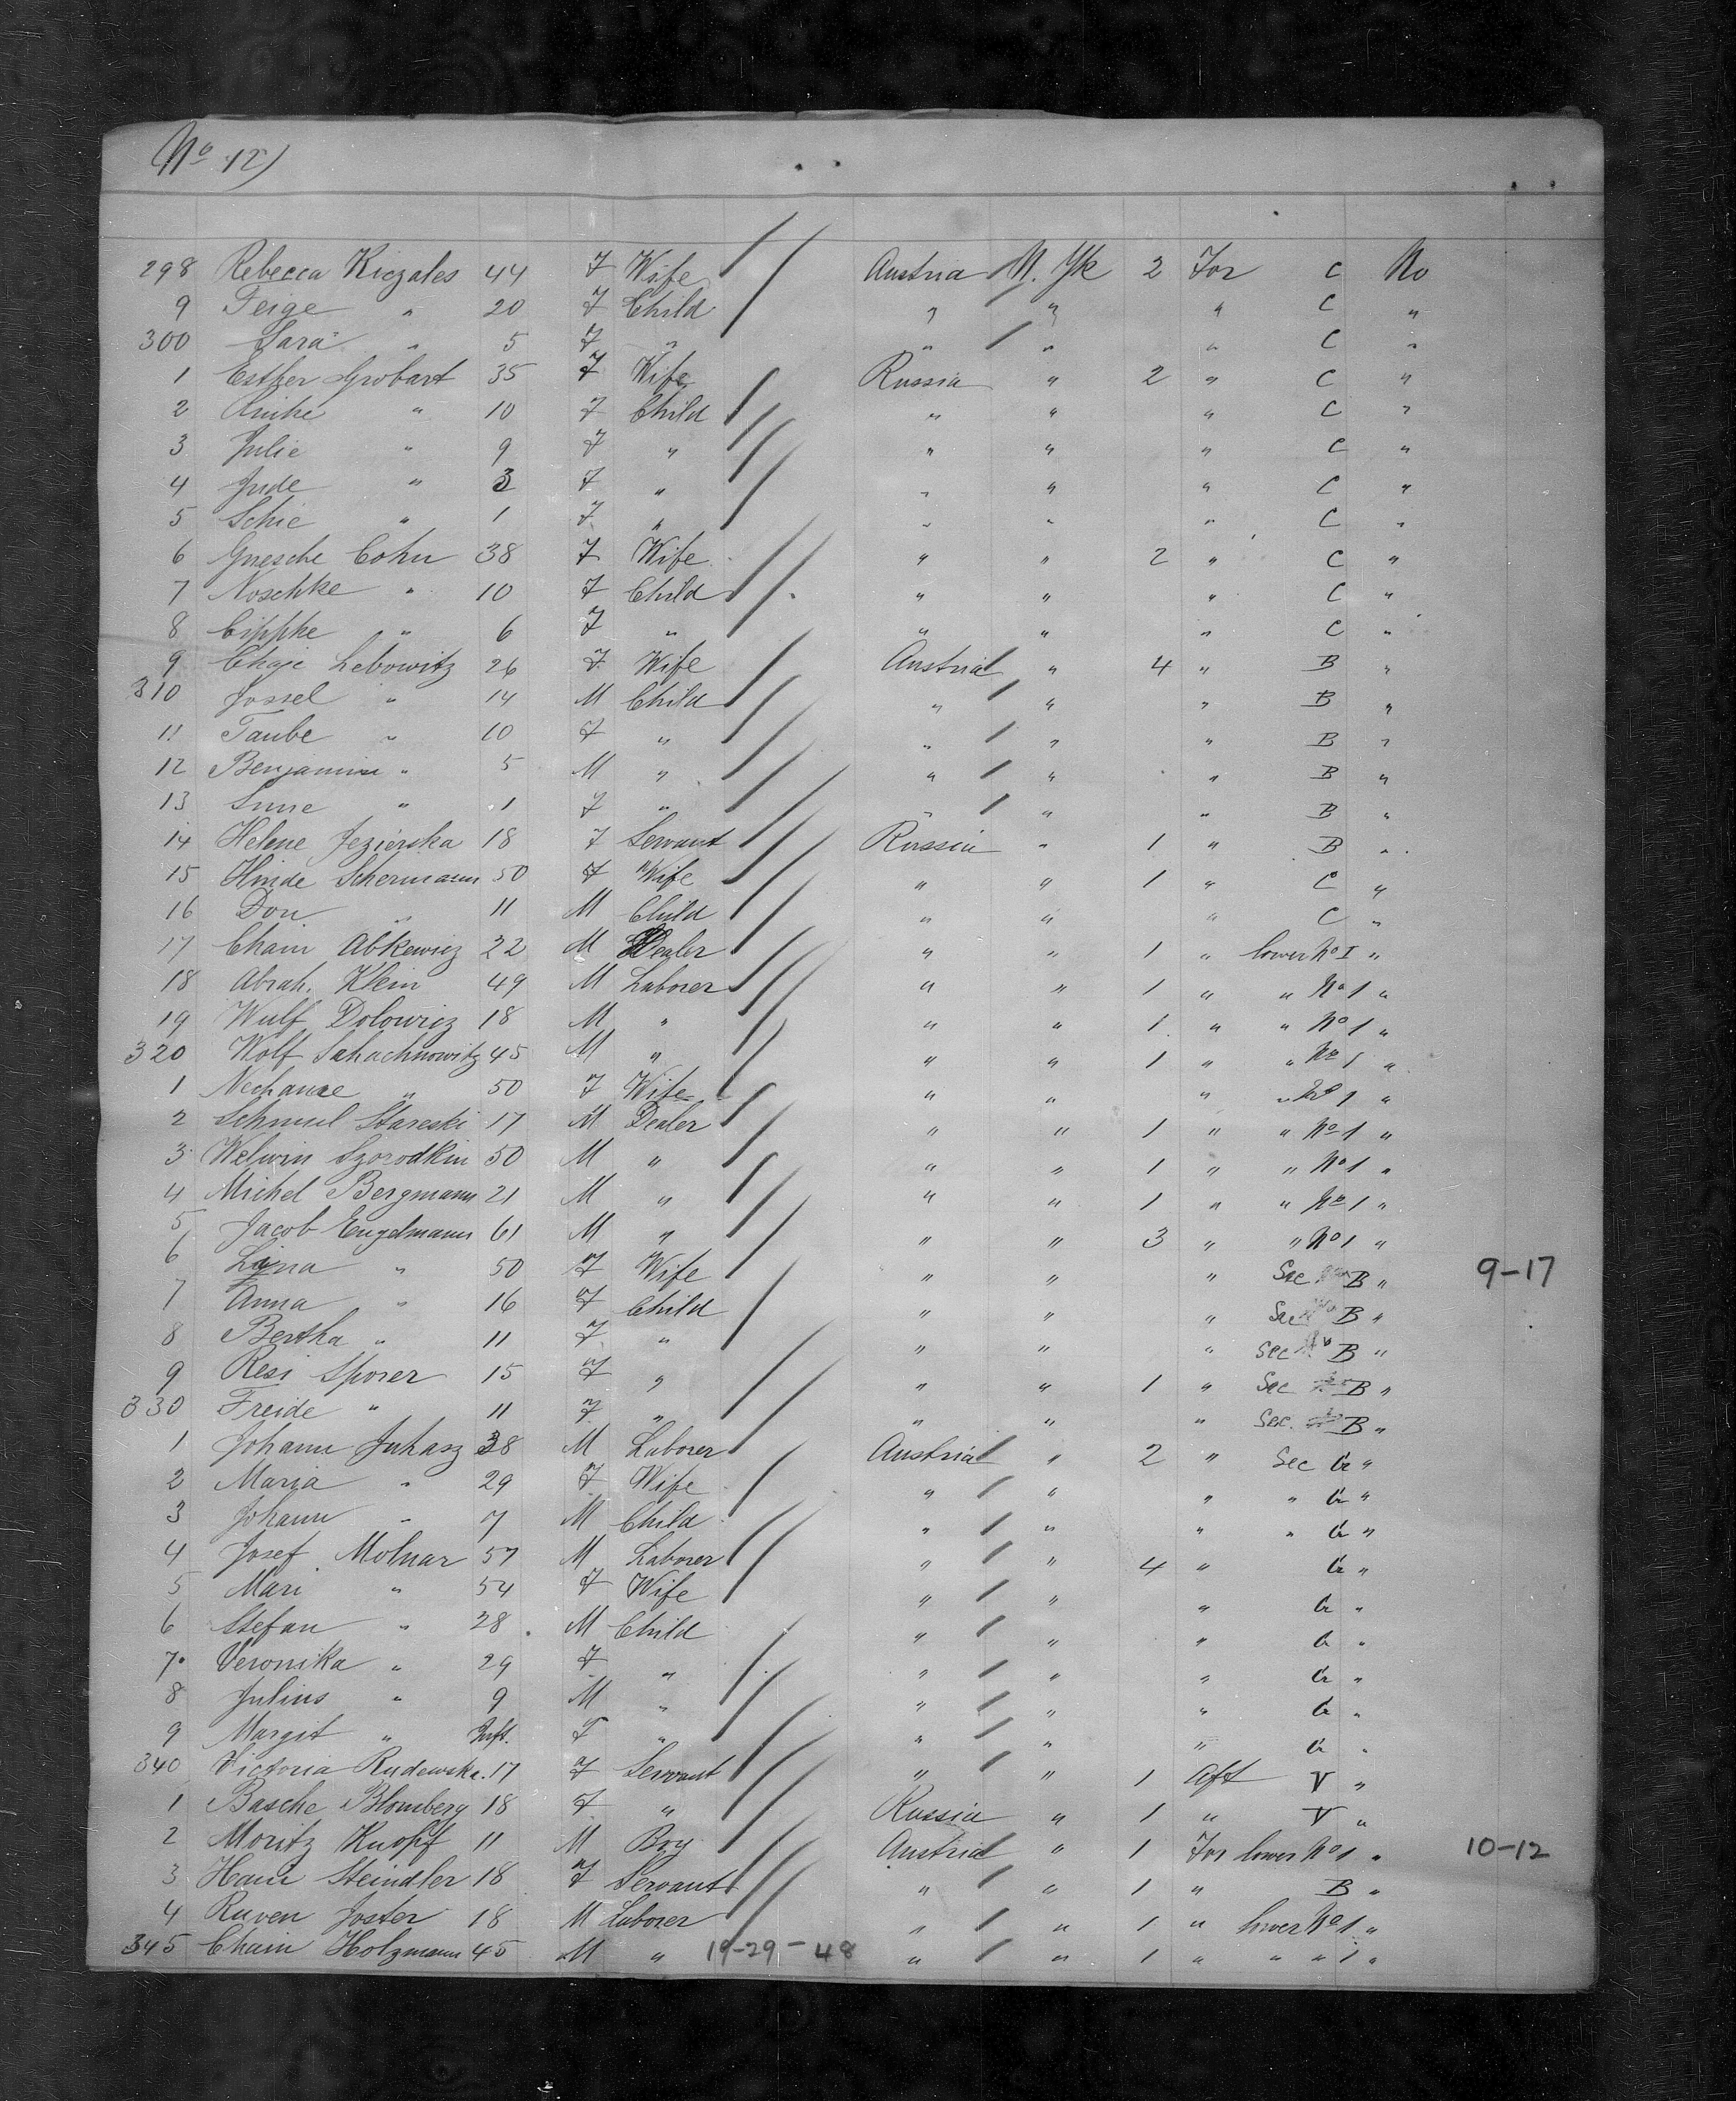 No 12)
298 Rebecca Kiczales 44 F Wife Austria N. Yk 2 For C No
9 Feige " 20 F Child " " " C "
300 Sara " 5 F " " " " C "
1 Esther Grobart 35 F Wife Russia " 2 " C "
2 " 10 F Child " " " C "
3 Julie " 9 F " " " " C "
4 Jude " 3 F " " " " C "
5 Schie " 1 F " " " " C "
6 Gnesche Cohn 38 F Wife " " 2 " C "
7 Noschke " 10 F Child " " " C "
8 Cippke " 6 F " " " " C "
9 Chaje Lebowitz 26 F Wife Austria " 4 " B "
310 Jossel " 14 M Child " " " B "
11 Taube " 10 F " " " " B "
12 Benjamin " 5 M " " " " B "
13 " 1 F " " " " B "
14 Helene Jezierska 18 F Servant Russia " 1 " B "
15 Hinde Schermann 50 F Wife " " 1 " C "
16 Don " 11 M Child " " " C "
17 Chaim Abkewicz 22 M Dealer " " 1 " lower No I "
18 Abrah. Klein 49 M Laborer " " 1 " " No 1 "
19 Wulf Dolowicz 18 M " " " 1 " " No 1 "
320 Wolf Schachnowitz 45 M " " " 1 " " No 1 "
1 " 50 F Wife " " " " No 1 "
2 Schmul Stareski 17 M Dealer " " 1 " " No 1 "
3 Welwin Szorodkin 50 M " " " 1 " " No 1 "
4 Michel Bergmann 21 M " " " 1 " " No 1 "
5 Jacob Engelmann 61 M " " " 3 " " No 1 "
6 Lina " 50 F Wife " " " Sec B " 9-17
7 Anna " 16 F Child " " " Sec B "
8 Bertha " 11 F " " " " Sec B "
9 Resi Sporer 15 F " " " 1 " Sec B "
330 Freide " 11 F " " " " Sec. B "
1 Johann Juhasz 38 M Laborer Austria " 2 " Sec G "
2 Maria " 29 F Wife " " " " G "
3 Johann " 7 M Child " " " " G "
4 Josef Molnar 57 M Laborer " " 4 " G "
5 Mari " 54 F Wife " " " G "
6 Stefan " 28 M Child " " " G "
7 Veronika " 29 F " " " " G "
8 Julius " 9 M " " " " G "
9 Margit " Inft. F " " " " G "
340 Victoria Rudewska. 17 F Servant " " 1 Aft V "
1 Basche Blomberg 18 F " Russia " 1 " V "
2 Moritz Knopf 11 M Boy Austria " 1 For lower No 1 " 10-12
3 Hani Steindler 18 F Servant " " 1 " B "
4 Ruven Joster 18 M Laborer " " 1 " lower No 1 "
345 Chaim Holzmann 45 M " 19-29-48 " " 1 " " " 1 "